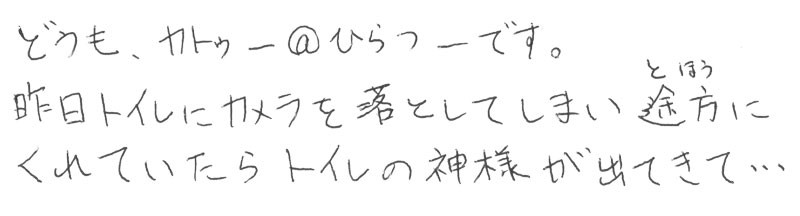 どうも、カトゥー@ひらつーです。
昨日トイレにカメラを落としてしまい途方に
くれていたらトイレの神様が出てきて…
とほう